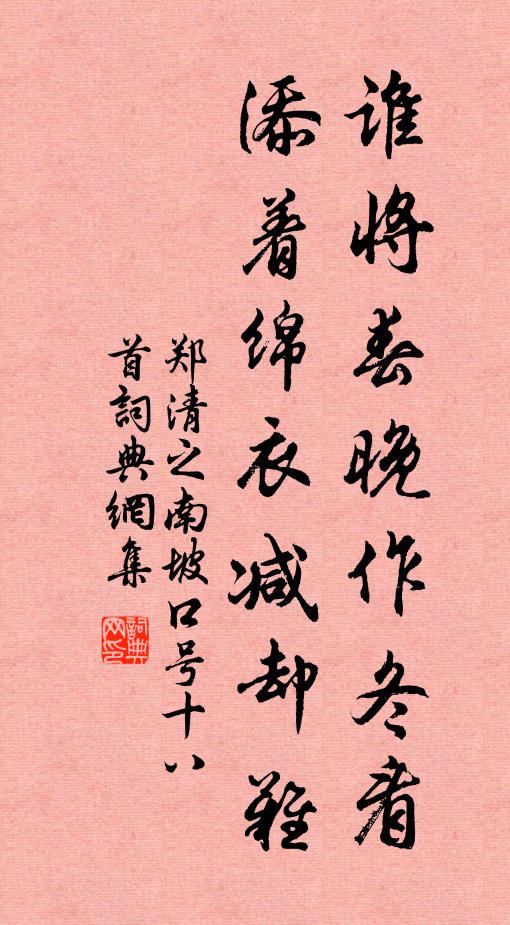 谁将春晚作冬看
添着绵衣减却难
郑清之南坡口号十八
首詞典網集
詞典
网印